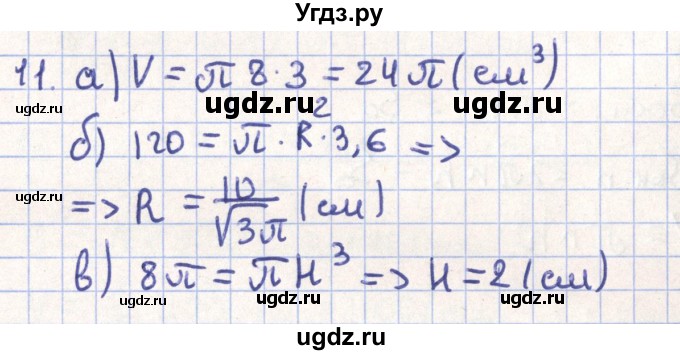 Угдз.ру
11. а) V = π 8 · 3 = 24 π (см³)
ugdz.ru ugdz.ru
б) 120 = π · R² · 3,6 =>
ugdz.ru ugdz.ru
=> R = 10/√3π (см)
ugdz.ru
в) 8π = πH³ => H = 2 (см)
ugdz.ru ugdz.ru
ugdz.ru